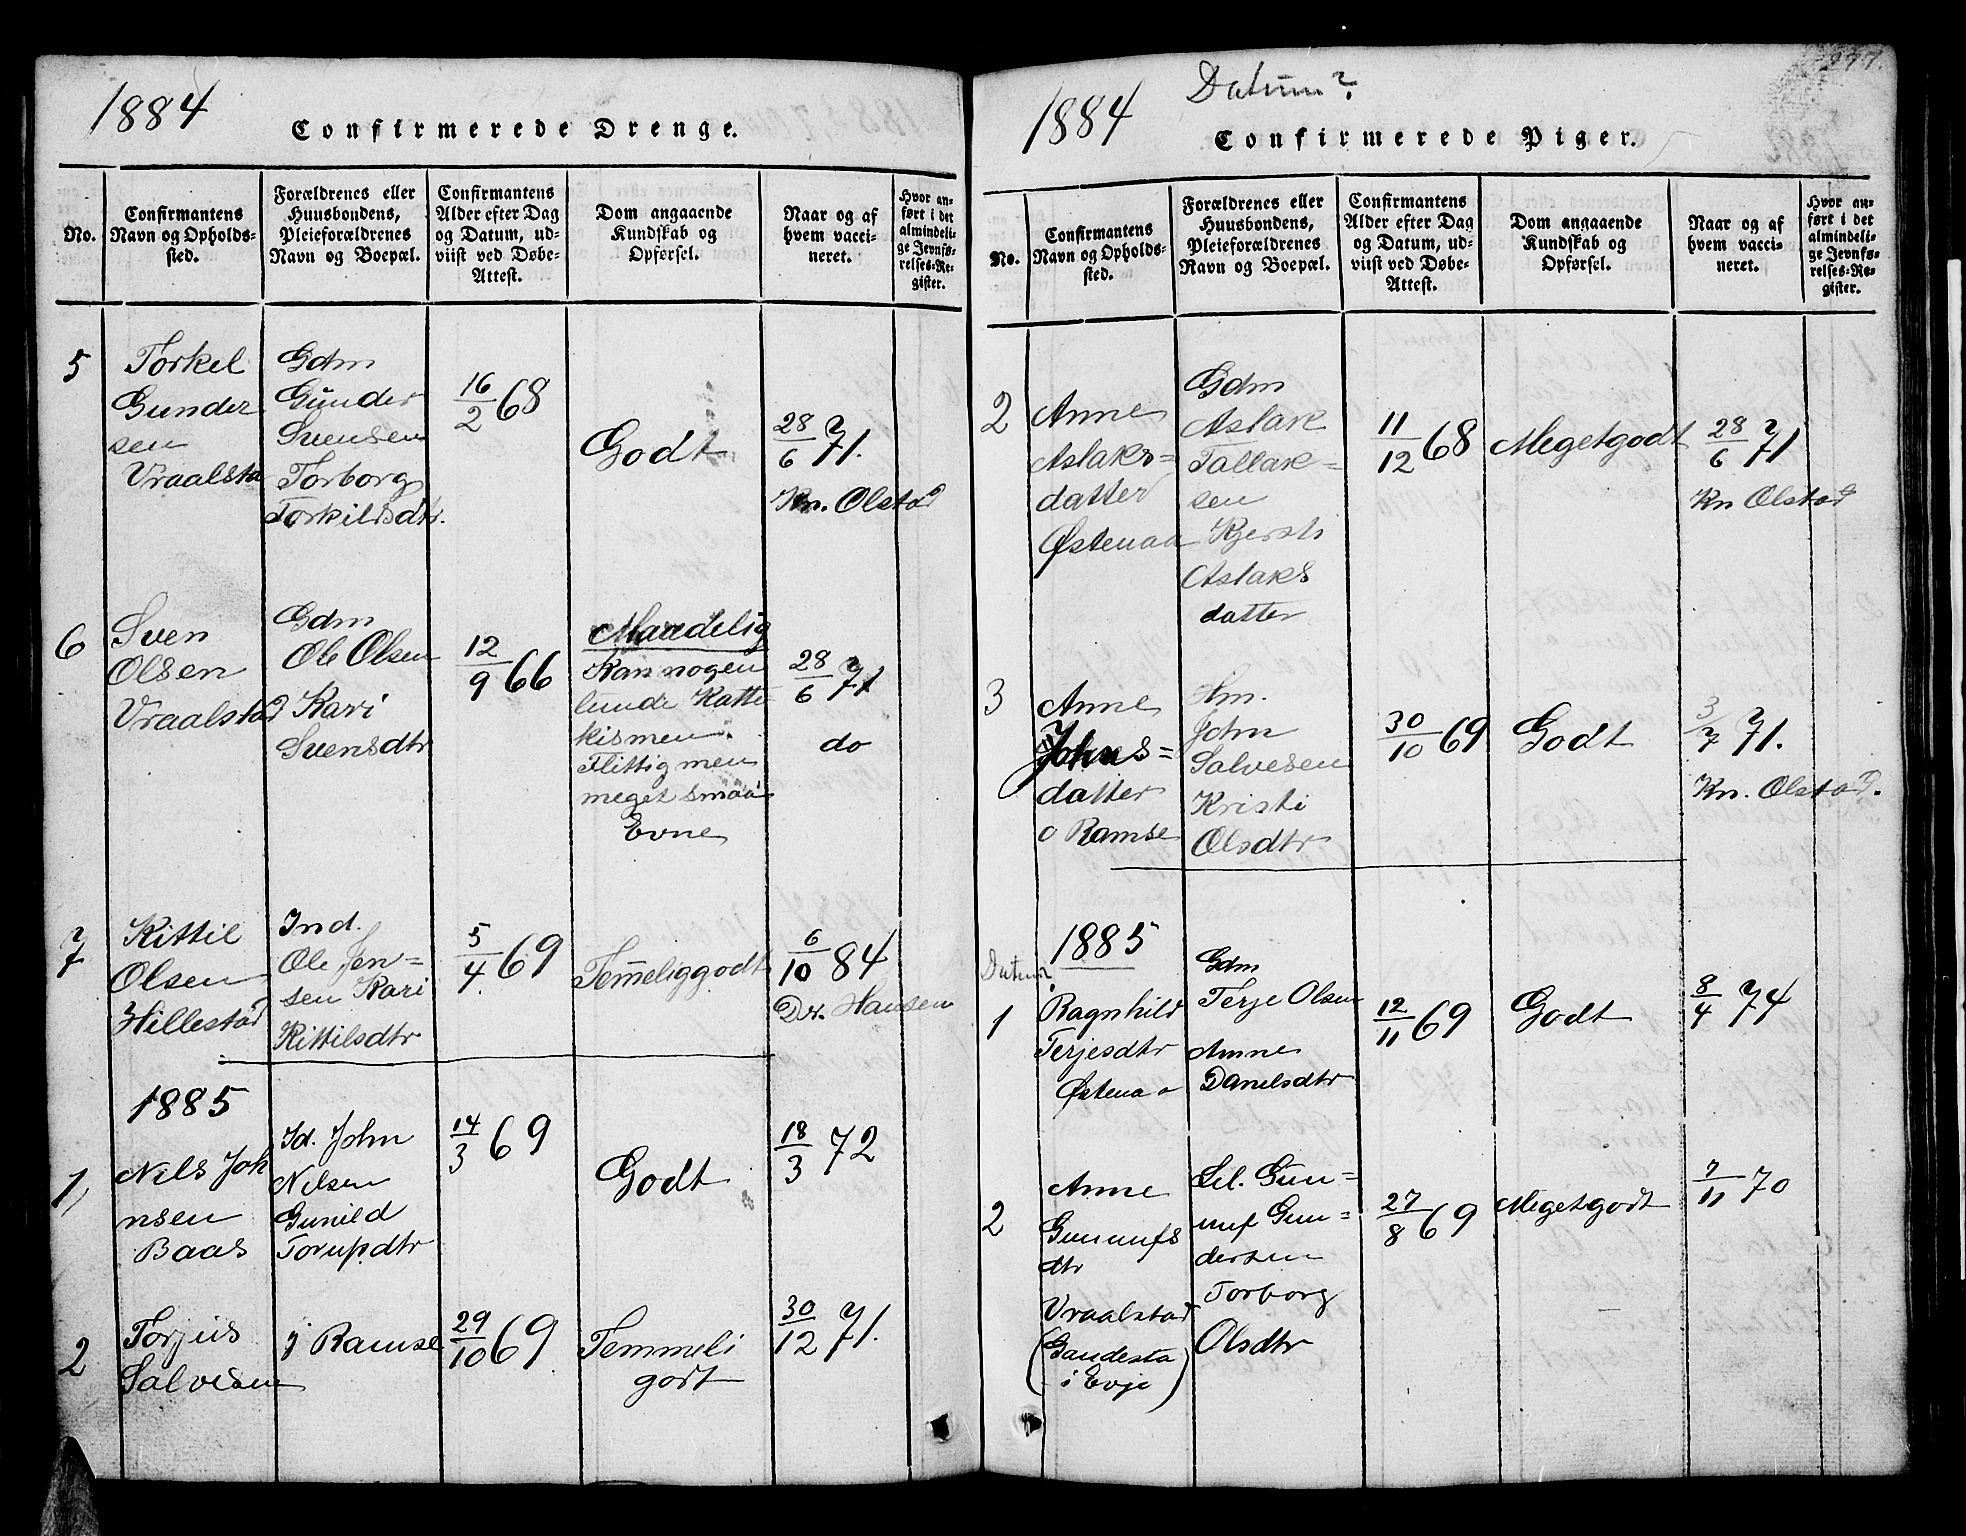 1884
Confirmerede Drenge.
No.
Confirmantens
Navn og Opholds-
sted.
Forældrenes eller
Huusbondens,
Pleieforældrenes
Navn og Boepæl.
Confirmantens
Alder efter Dag
og Datum, ud-
viist ved Døbe-
Attest.
Dom angaaende
Kundskab og
Opførsel.
Naar og af
hvem vacci-
neret.
Hvor an-
ført i det
almindeli-
ge Jevnfø-
relses-Re-
gister.
5
Torkel
Gunder
sen
Vraalsta
Gdm
Gunder
Svensen
Torborg
Torkildsdtr.
16/2 68
Godt
28/6 71.
Kn. Olstad
6
Sven
Olsen
Vraalstad
Gdm
Ole Olsen
Kari
Svensdtr
12/9 66
Maadelig
Kan nogen
lunde Katte
kismen.
Flittig men
meget smaa
Evne
28/6 71
do
7
Kittil
Olsen
Hillestad
Ind.
Ole Jen=
sen Kari
Kittilsdtr
5/4 69
Temeliggodt
6/10 84
Dr. Hansen
1885
1
Nils Joh
nsen
Baas
Id. John
Nilsen
Gunild
Torupdtr
14/3 69
Godt
18/3 72
2
Torjus
Salvesen
j Ramse
29/10 69
Temmeli
godt
30/12 71.
277.
1884
Datum?
Confirmerede Piger.
No.
Confirmantens
Navn og Opholds-
sted.
Forældrenes eller
Huusbondens,
Pleieforældrenes
Navn og Boepæl.
Confirmantens
Alder efter Dag
og Datum, ud-
viist ved Døbe-
Attest.
Dom angaaende
Kundskab og
Opførsel.
Naar og af
hvem vacci-
neret.
Hvor an-
ført i det
almindeli-
ge Jevnfø-
relses-Re-
gister.
2
Anne
Aslaks=
datter
Østenaa
Gdm
Aslak
Tallak=
sen
Kjersti
Aslaks
datter
11/12 68
Megetgodt
28/6 71
Kn Olstad
3
Anne
Johns=
datter
o Ramse
Hm.
John
Salvesen
Kristi
Olsdtr
30/10 69
Godt
3/7 71.
Kn. Olstad.
1885
Datum?
1
Ragnhild
Terjesdtr
Østenaa
Gdm
Terje Olsen
Anne
Danielsdtr
12/11 69
Godt
8/4 74
2
Anne
Gunnufs
dtr
Vraalstad
(Gaudesta
i Evje)
Sel. Gun=
nuf Gun=
dersen
Torborg
Olsdtr
27/8 69
Megetgodt
7/11 70